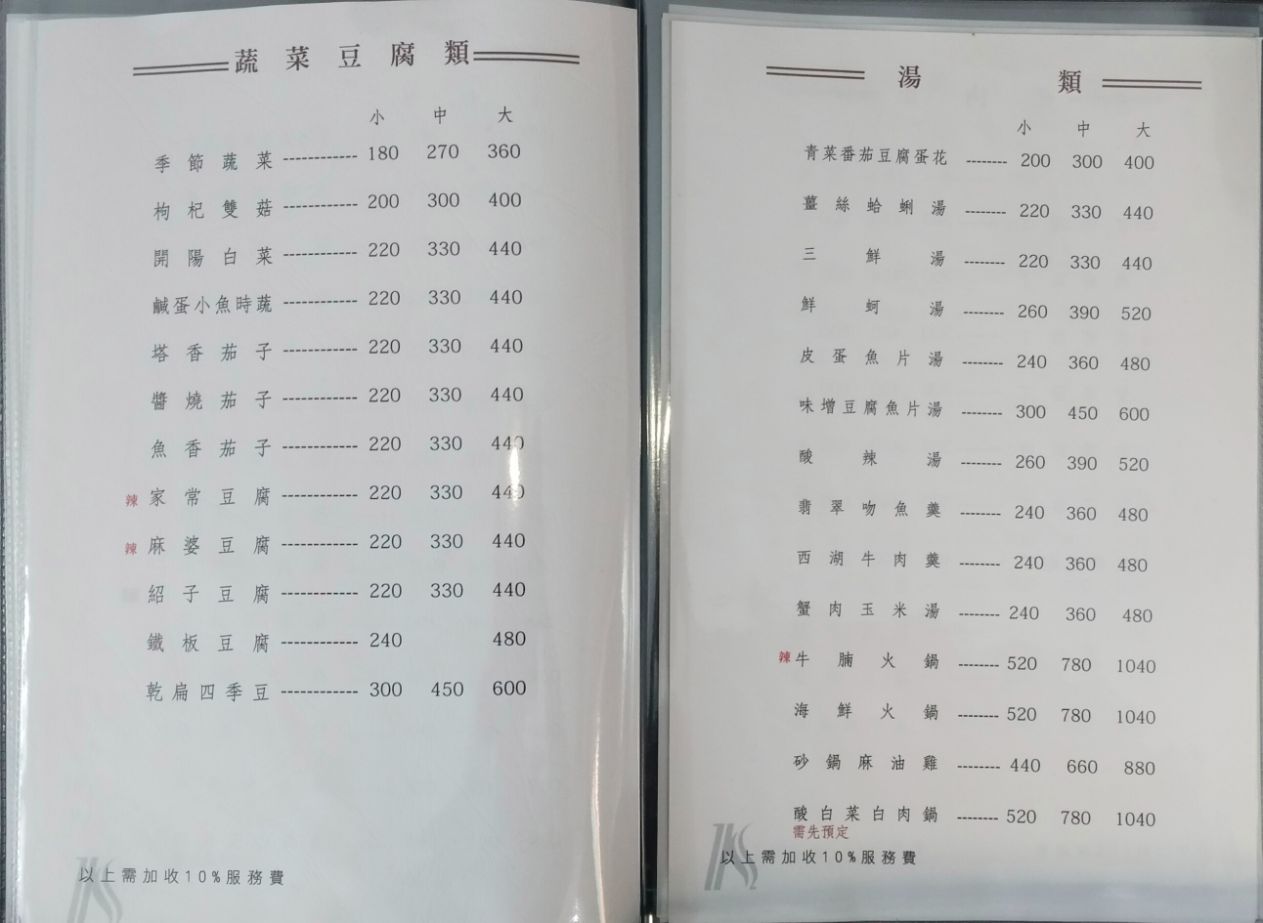 蔬菜豆腐類
小 中 大
季節蔬菜 ------------ 180 270 360
枸杞雙菇 ------------ 200 300 400
開陽白菜 ------------ 220 330 440
鹹蛋小魚時蔬 ------------ 220 330 440
塔香茄子 ------------ 220 330 440
醬燒茄子 ------------ 220 330 440
魚香茄子 ------------ 220 330 440
辣 家常豆腐 ------------ 220 330 440
辣 麻婆豆腐 ------------ 220 330 440
紹子豆腐 ------------ 220 330 440
鐵板豆腐 ------------ 240 480
乾扁四季豆 ------------ 300 450 600
以上需加收10%服務費
湯類
小 中 大
青菜番茄豆腐蛋花 -------- 200 300 400
薑絲蛤蜊湯 -------- 220 330 440
三鮮湯 -------- 220 330 440
鮮蚵湯 -------- 260 390 520
皮蛋魚片湯 -------- 240 360 480
味增豆腐魚片湯 -------- 300 450 600
酸辣湯 -------- 260 390 520
翡翠吻魚羹 -------- 240 360 480
西湖牛肉羹 -------- 240 360 480
蟹肉玉米湯 -------- 240 360 480
辣 牛腩火鍋 -------- 520 780 1040
海鮮火鍋 -------- 520 780 1040
砂鍋麻油雞 -------- 440 660 880
酸白菜白肉鍋 -------- 520 780 1040
需先預定
以上需加收10%服務費